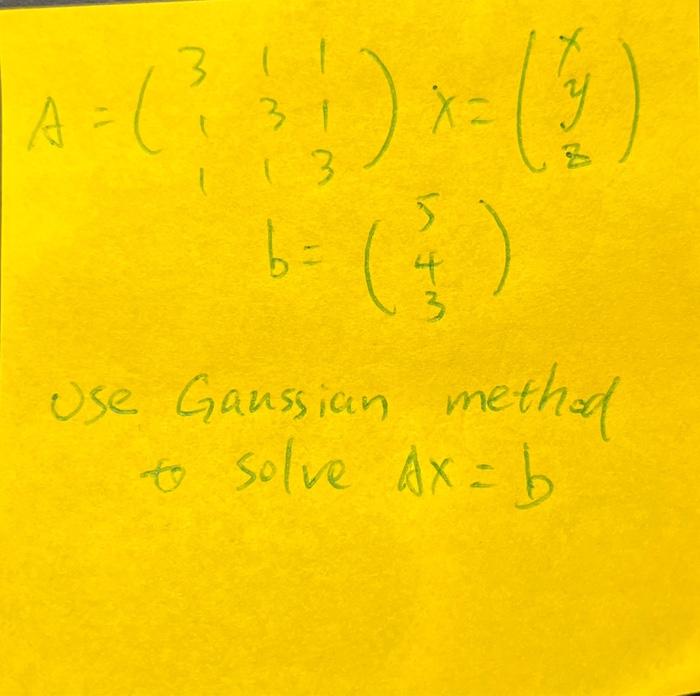 A = ( 3 1 1 ) x = ( x )
1 3 1 y
1 1 3 z
b = ( 5 )
4
3
Use Gaussian method
to solve AX = b